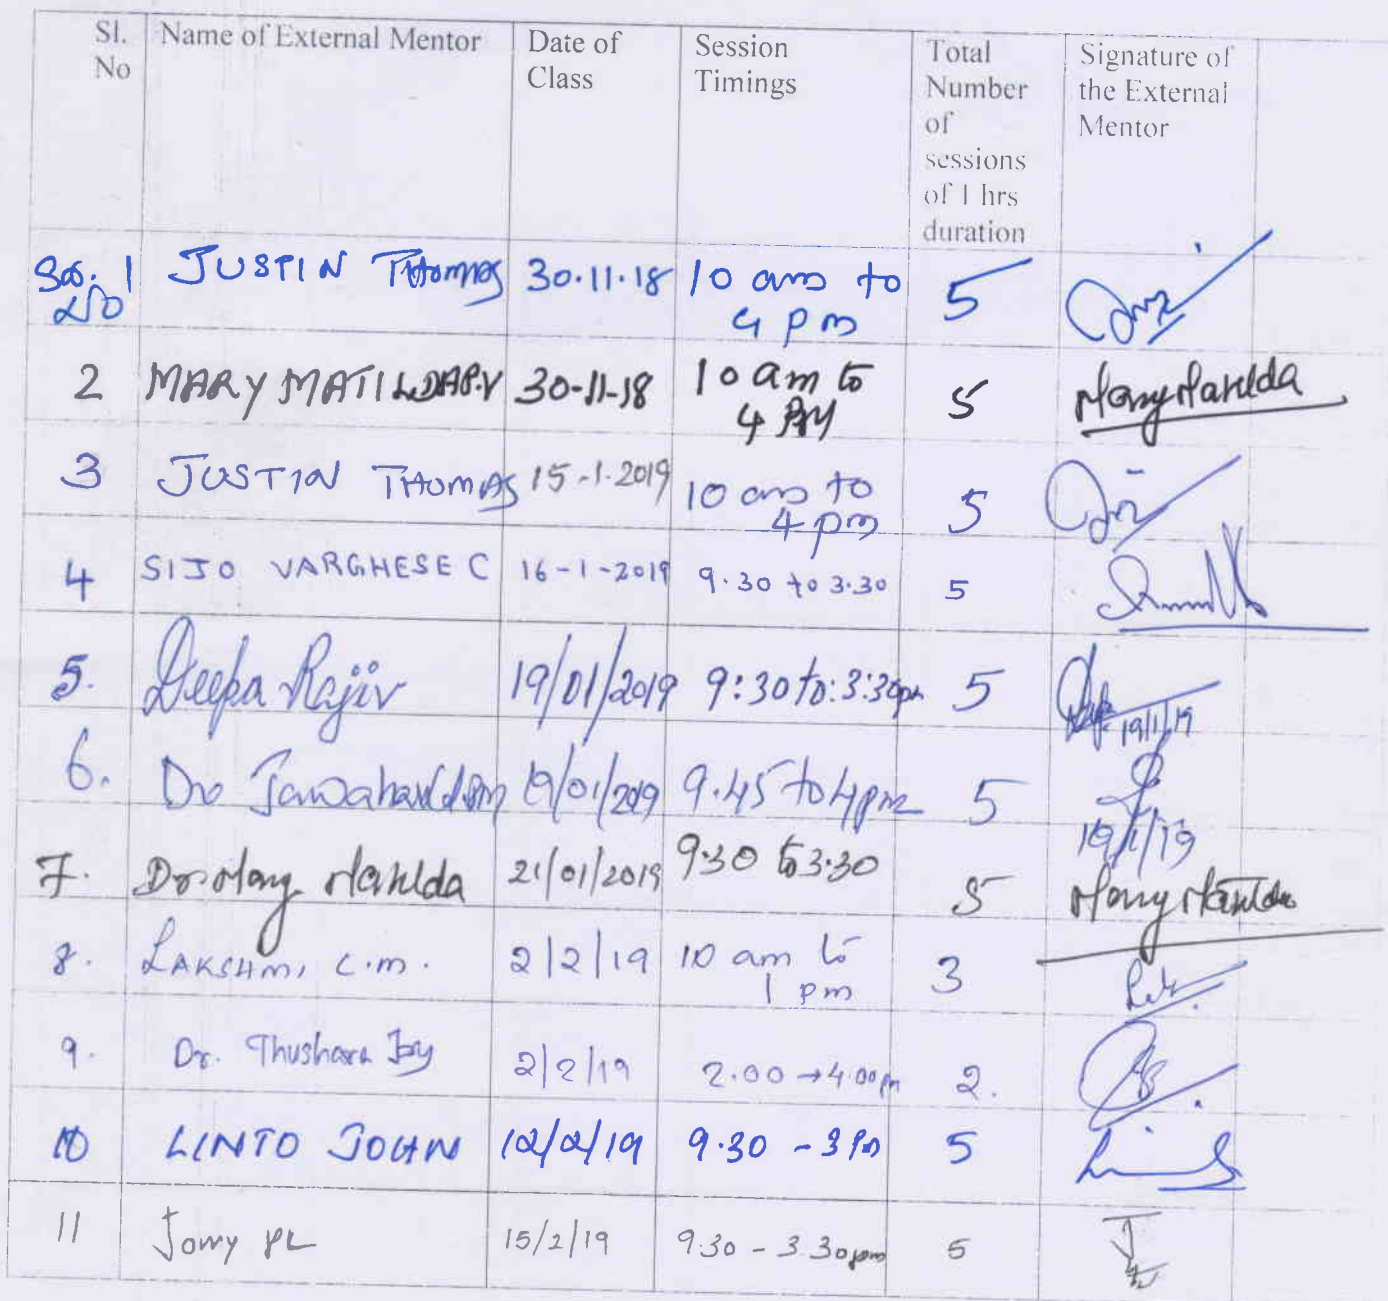 Sl. No Name of External Mentor Date of Class Session Timings Total Number of sessions of 1 hrs duration Signature of the External Mentor
1 JUSTIN THOMAS 30.11.18 10 am to 4 pm 5
2 MARY MATILDA P.V 30-11-18 10 am to 4 PM 5 Mary Matilda
3 JUSTIN THOMAS 15-1-2019 10 am to 4 pm 5
4 SIJO VARGHESE C 16-1-2019 9.30 to 3.30 5
5. Deepa Rajiv 19/01/2019 9:30 to 3:30pm 5 19/1/19
6. Dr 19/01/2019 9.45 to 4pm 5 19/1/19
7. Dr. Mary Matilda 21/01/2019 9.30 to 3.30 5 Mary Matilda
8. LAKSHMI C.M. 2/2/19 10 am to 1 pm 3
9. Dr. Thushara Joy 2/2/19 2.00 → 4.00pm 2.
10 LINTO JOHN 12/2/19 9.30 - 3 Pm 5
11 Jomy PL 15/2/19 9.30 - 3.30pm 5